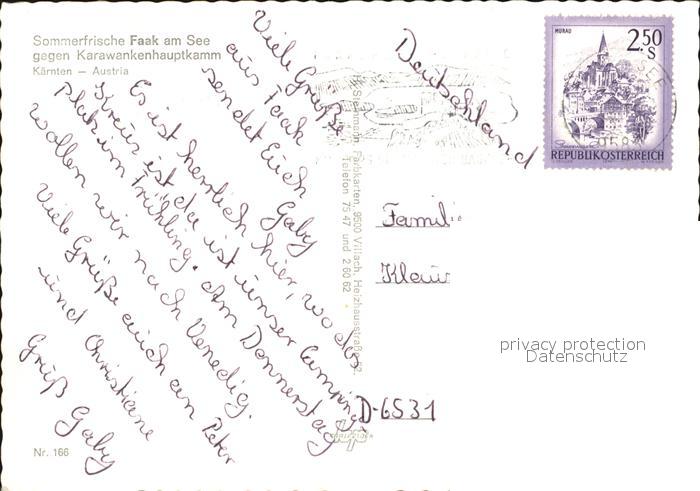 Sommerfrische Faak am See
gegen Karawankenhauptkamm
Kärnten – Austria
Viele Grüße
aus Faak
sendet Euch
Gaby
Es ist herrlich hier, wo das
Kreuz ist, da ist unser Camping-
platz im Frühling. Am Donnerstag
wollen wir nach Venedig.
Viele Grüße auch an Peter
und Christiane
Gruß Gaby
Nr. 166
Farbkarten, 9500 Villach, Heizhausstraße 57
Telefon 75 47 und 2 60 62
Deutschland
MURAU
2.50
S
REPUBLIK ÖSTERREICH
Famili
Klaus
privacy protection
Datenschutz
D-6531